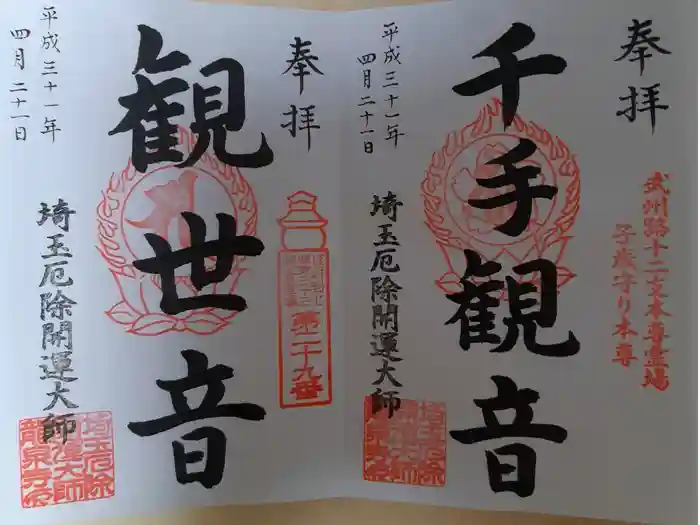 奉拝
武州路十二支本尊霊場
子歳守り本尊
千手観音
平成三十一年
四月二十一日
埼玉厄除開運大師
埼玉厄除
開運大師
龍泉寺印
奉拝
第二十九番
観世音
平成三十一年
四月二十一日
埼玉厄除開運大師
埼玉厄除
開運大師
龍泉寺印